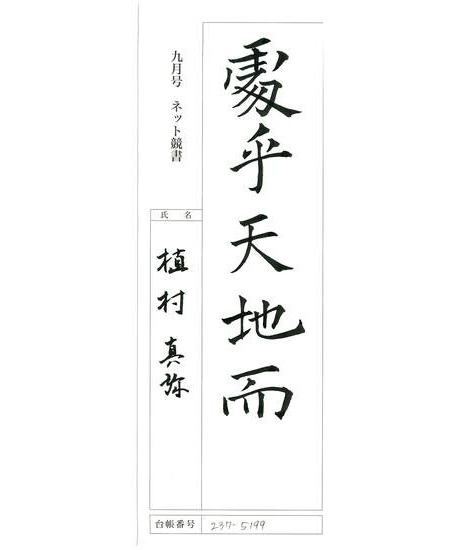 處乎天地而
九月号 ネット競書
氏名
植村 真弥
台帳番号 237-5199